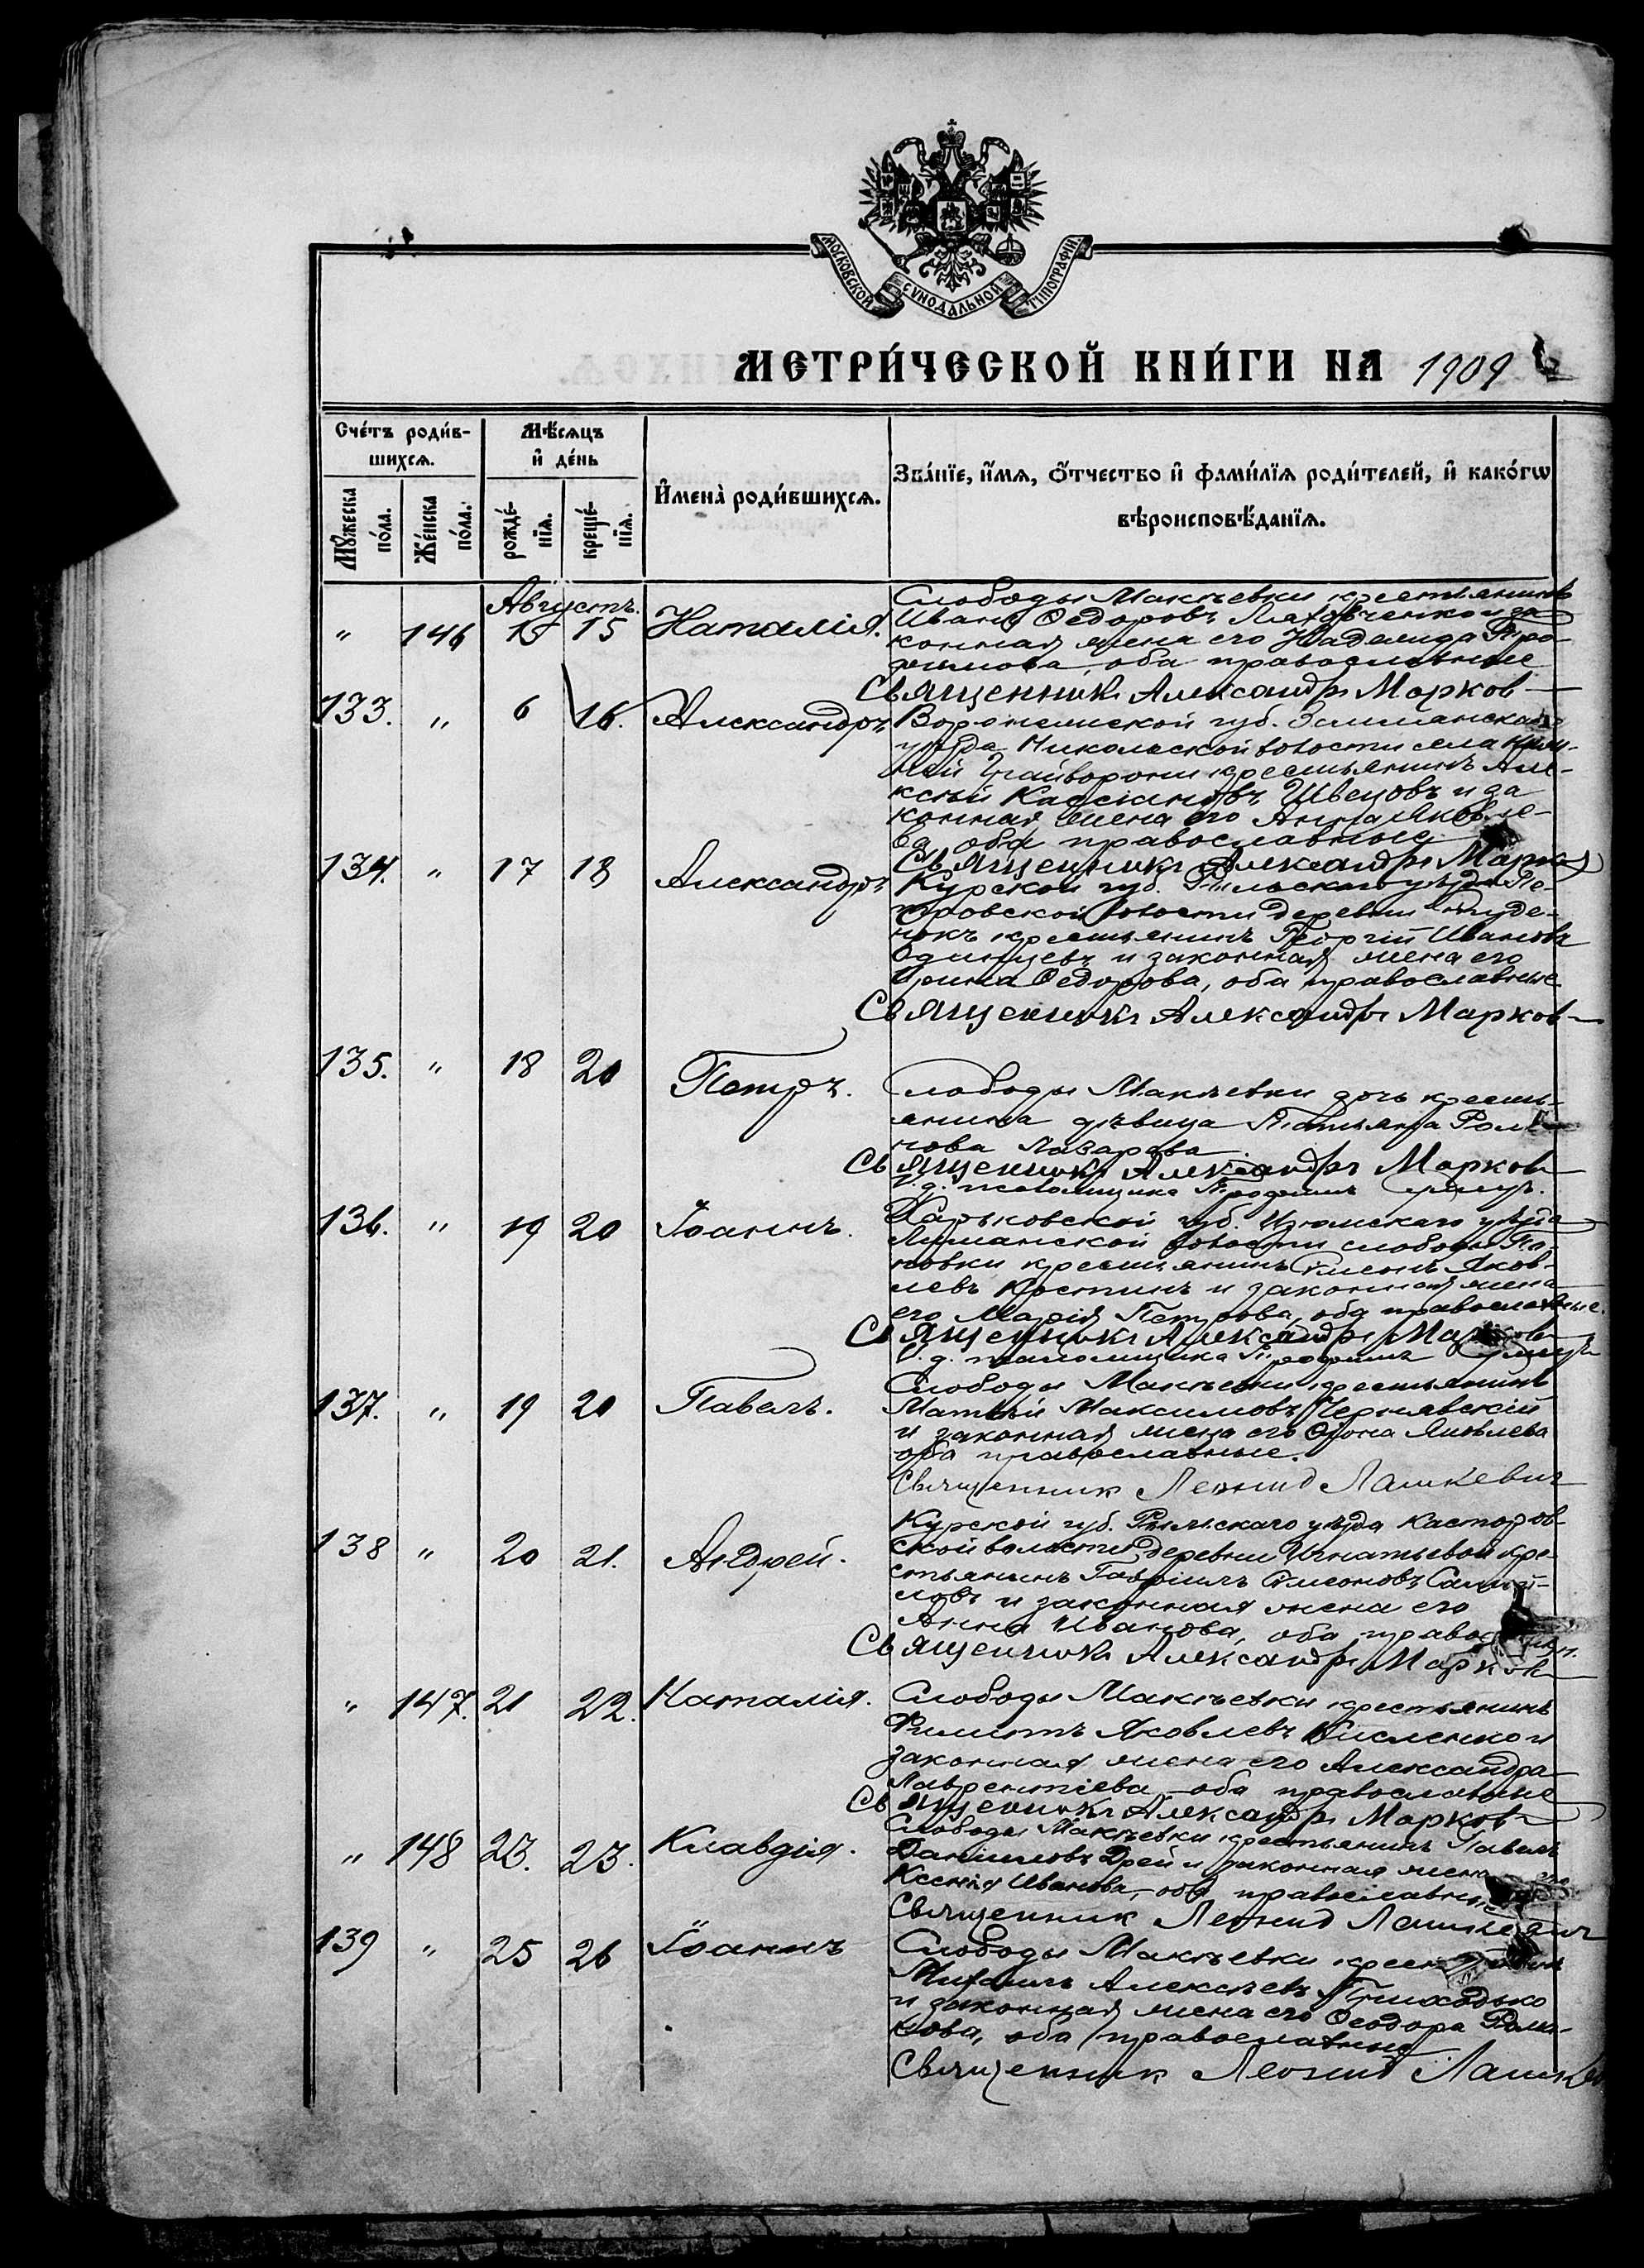 МОСКОВСКОЙ СѴНОДАЛЬНОЙ ТИПОГРАФІИ.
МЕТРИ́ЧЕСКОЙ КНИ́ГИ НА 1909
Сче́тъ роди́в-
шихсѧ.
Мꙋжеска по́ла.
Же́нска по́ла.
Мѣ́сѧцъ
и҆ де́нь
рожде́-
нїѧ.
креще́-
нїѧ.
И҆мена̀ роди́вшихсѧ.
Зва́нїе, и҆́мѧ, ѻ҆́тчество и҆ фами́лїѧ роди́телей, и҆ како́гѡ
вѣроисповѣ́данїѧ.
Августъ.
" 146 15 15 Наталія.
Слободы Макѣевки крестьянинъ
Иванъ Ѳедоровъ Ляховченко и за
конная жена его Надежда Тро-
фимова, оба православные
Священникъ Александръ Марков
133. " 6 16. Александръ
Воронежской губ. Землянскаго
уѣзда Никольской волости села
крестьянинъ Але-
ксѣй Кассіановъ Швецовъ и за
конная жена его Анна Яковле-
ва, оба православные
Священникъ Александръ Марков
134. " 17 18 Александръ
Курской губ. Рыльскаго уѣзда Пе-
тровской волости деревни Студе-
нокъ крестьянинъ Георгій Ивановъ
Одинцевъ и законная жена его
Ирина Ѳедорова, оба православные
Священникъ Александръ Марков
135. " 18 20 Петръ.
Слободы Макѣевки дочь кресть-
янина дѣвица Татьяна Рома
нова Лазарева.
Священникъ Александръ Марков
И. д. псаломщика Трофимъ
136. " 19 20 Іоаннъ.
Харьковской губ. Изюмскаго уѣзда
Лиманской волости слободы По-
повки крестьянинъ Симеонъ Яков-
левъ Костинъ и законная жена
его Марія Петрова, оба православные.
Священникъ Александръ Марков
И. д. псаломщика Трофимъ
137. " 19 20 Павелъ.
Слободы Макѣевки крестьянинъ
Матѳѣй Максимовъ Чернявскій
и законная жена его Яковлева
оба православные.
Священник Леонид Лашкевич
138 " 20 21. Андрей.
Курской губ. Рыльскаго уѣзда Касторов-
ской волости деревни Игнатьевой кре-
стьянинъ Гавріилъ Симеоновъ Самой-
ловъ и законная жена его
Анна Иванова, оба православн.
Священникъ Александръ Марков
" 147. 21 22. Наталія.
Слободы Макѣевки крестьянинъ
Филиппъ Яковлевъ Кисленко и
законная жена его Александра
Лаврентіева, оба православные
Священникъ Александръ Марков
" 148 23. 23. Клавдія.
Слободы Макѣевки крестьянинъ Павелъ
Даніиловъ Дрей и законная жена его
Ксенія Иванова, оба православные
Священник Леонид Лашкевич
139 " 25 26 Іоаннъ
Слободы Макѣевки крестьянинъ
Михаилъ Алексѣевъ Приходько
и законная жена его Ѳеодора Рома-
нова, оба православные
Священник Леонид Лашкев